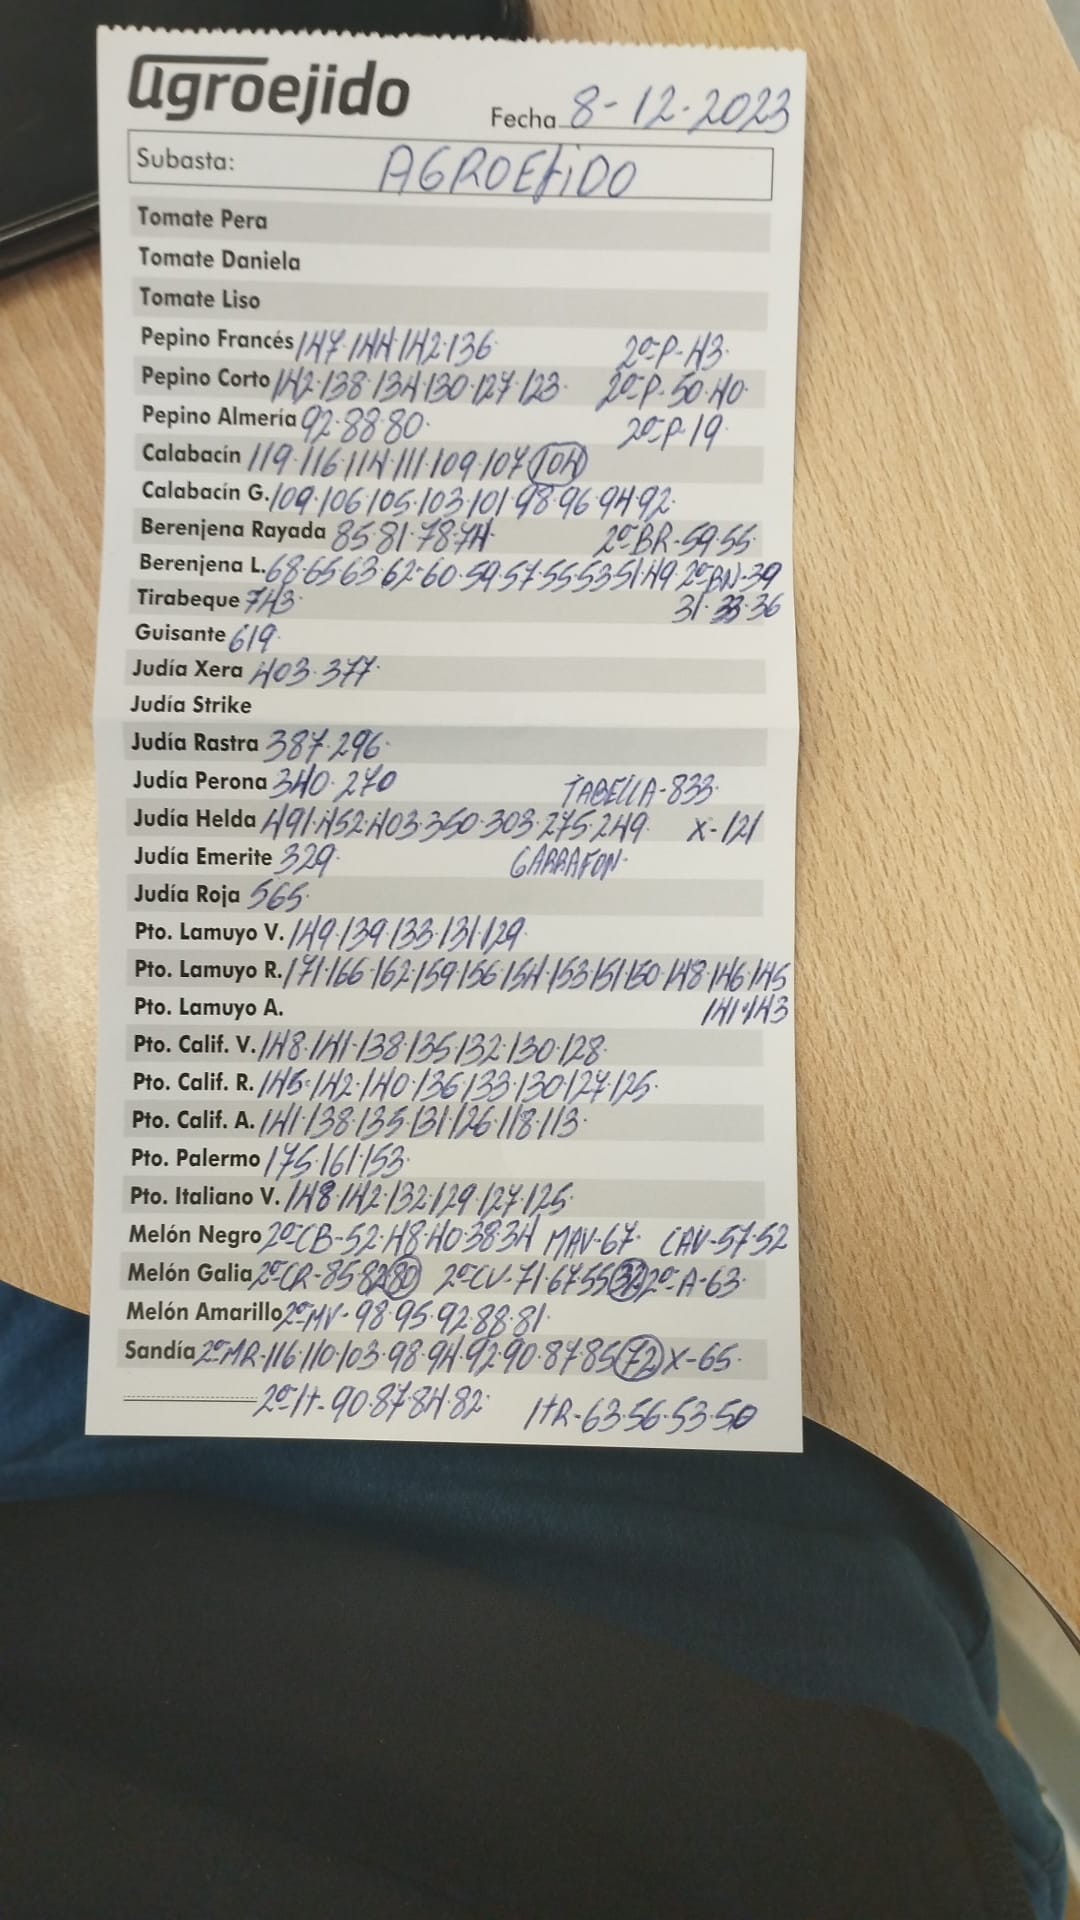 agroejido
Fecha 8-12-2023
Subasta: AGROEJiDO
Tomate Pera
Tomate Daniela
Tomate Liso
Pepino Francés 147·144·142·136 2ª-P-43·
Pepino Corto 142·138·134·130·127·123· 2ª-P-50·40·
Pepino Almería 92·88·80· 2ª-P-19·
Calabacín 119·116·114·111·109·107 104
Calabacín G. 109·106·105·103·101·98·96·94·92·
Berenjena Rayada 85·81·78·74· 2ª-BR-59·55·
Berenjena L. 68·65·63·62·60·59·57·55·53·51·49· 2ª-BN-39
Tirabeque 743· 31·33·36
Guisante 619·
Judía Xera 403·377·
Judía Strike
Judía Rastra 387·296·
Judía Perona 340·270 TABELLA-833·
Judía Helda 491·452·403·350·303·275·249· X-121
Judía Emerite 329· GARRAFON·
Judía Roja 565·
Pto. Lamuyo V. 149·139·133·131·129·
Pto. Lamuyo R. 171·166·162·159·156·154·153·151·150·148·146·145
Pto. Lamuyo A. 141·143
Pto. Calif. V. 148·141·138·135·132·130·128·
Pto. Calif. R. 145·142·140·136·133·130·127·125·
Pto. Calif. A. 141·138·135·131·126·118·113·
Pto. Palermo 175·161·153·
Pto. Italiano V. 148·142·132·129·127·125·
Melón Negro 2ª-CB-52·48·40·38·34 MAV-67· CAV-57·52
Melón Galia 2ª-CR-85·82·80 2ª-CV-71·67·55·32 2ª-A-63·
Melón Amarillo 2ª-MV-98·95·92·88·81·
Sandía 2ª-MR-116·110·103·98·94·92·90·87·85 72 X-65·
2ª-It-90·87·84·82· ItR-63·56·53·50